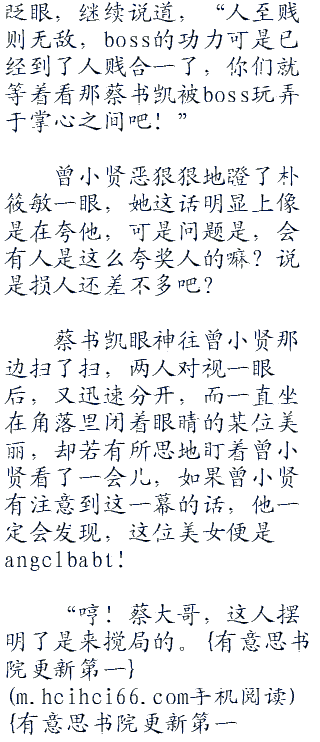 眨眼，继续说道，“人至贱
则无敌，boss的功力可是已
经到了人贱合一了，你们就
等着看那蔡书凯被boss玩弄
于掌心之间吧！”
曾小贤恶狠狠地蹬了朴
筱敏一眼，她这话明显上像
是在夸他，可是问题是，会
有人是这么夸奖人的嘛？说
是损人还差不多吧？
蔡书凯眼神往曾小贤那
边扫了扫，两人对视一眼
后，又迅速分开，而一直坐
在角落里闭着眼睛的某位美
丽，却若有所思地盯着曾小
贤看了一会儿，如果曾小贤
有注意到这一幕的话，他一
定会发现，这位美女便是
angclbabt！
“哼！蔡大哥，这人摆
明了是来搅局的。{有意思书
院更新第一}
(m.hcihci66.com手机阅读)
{有意思书院更新第一